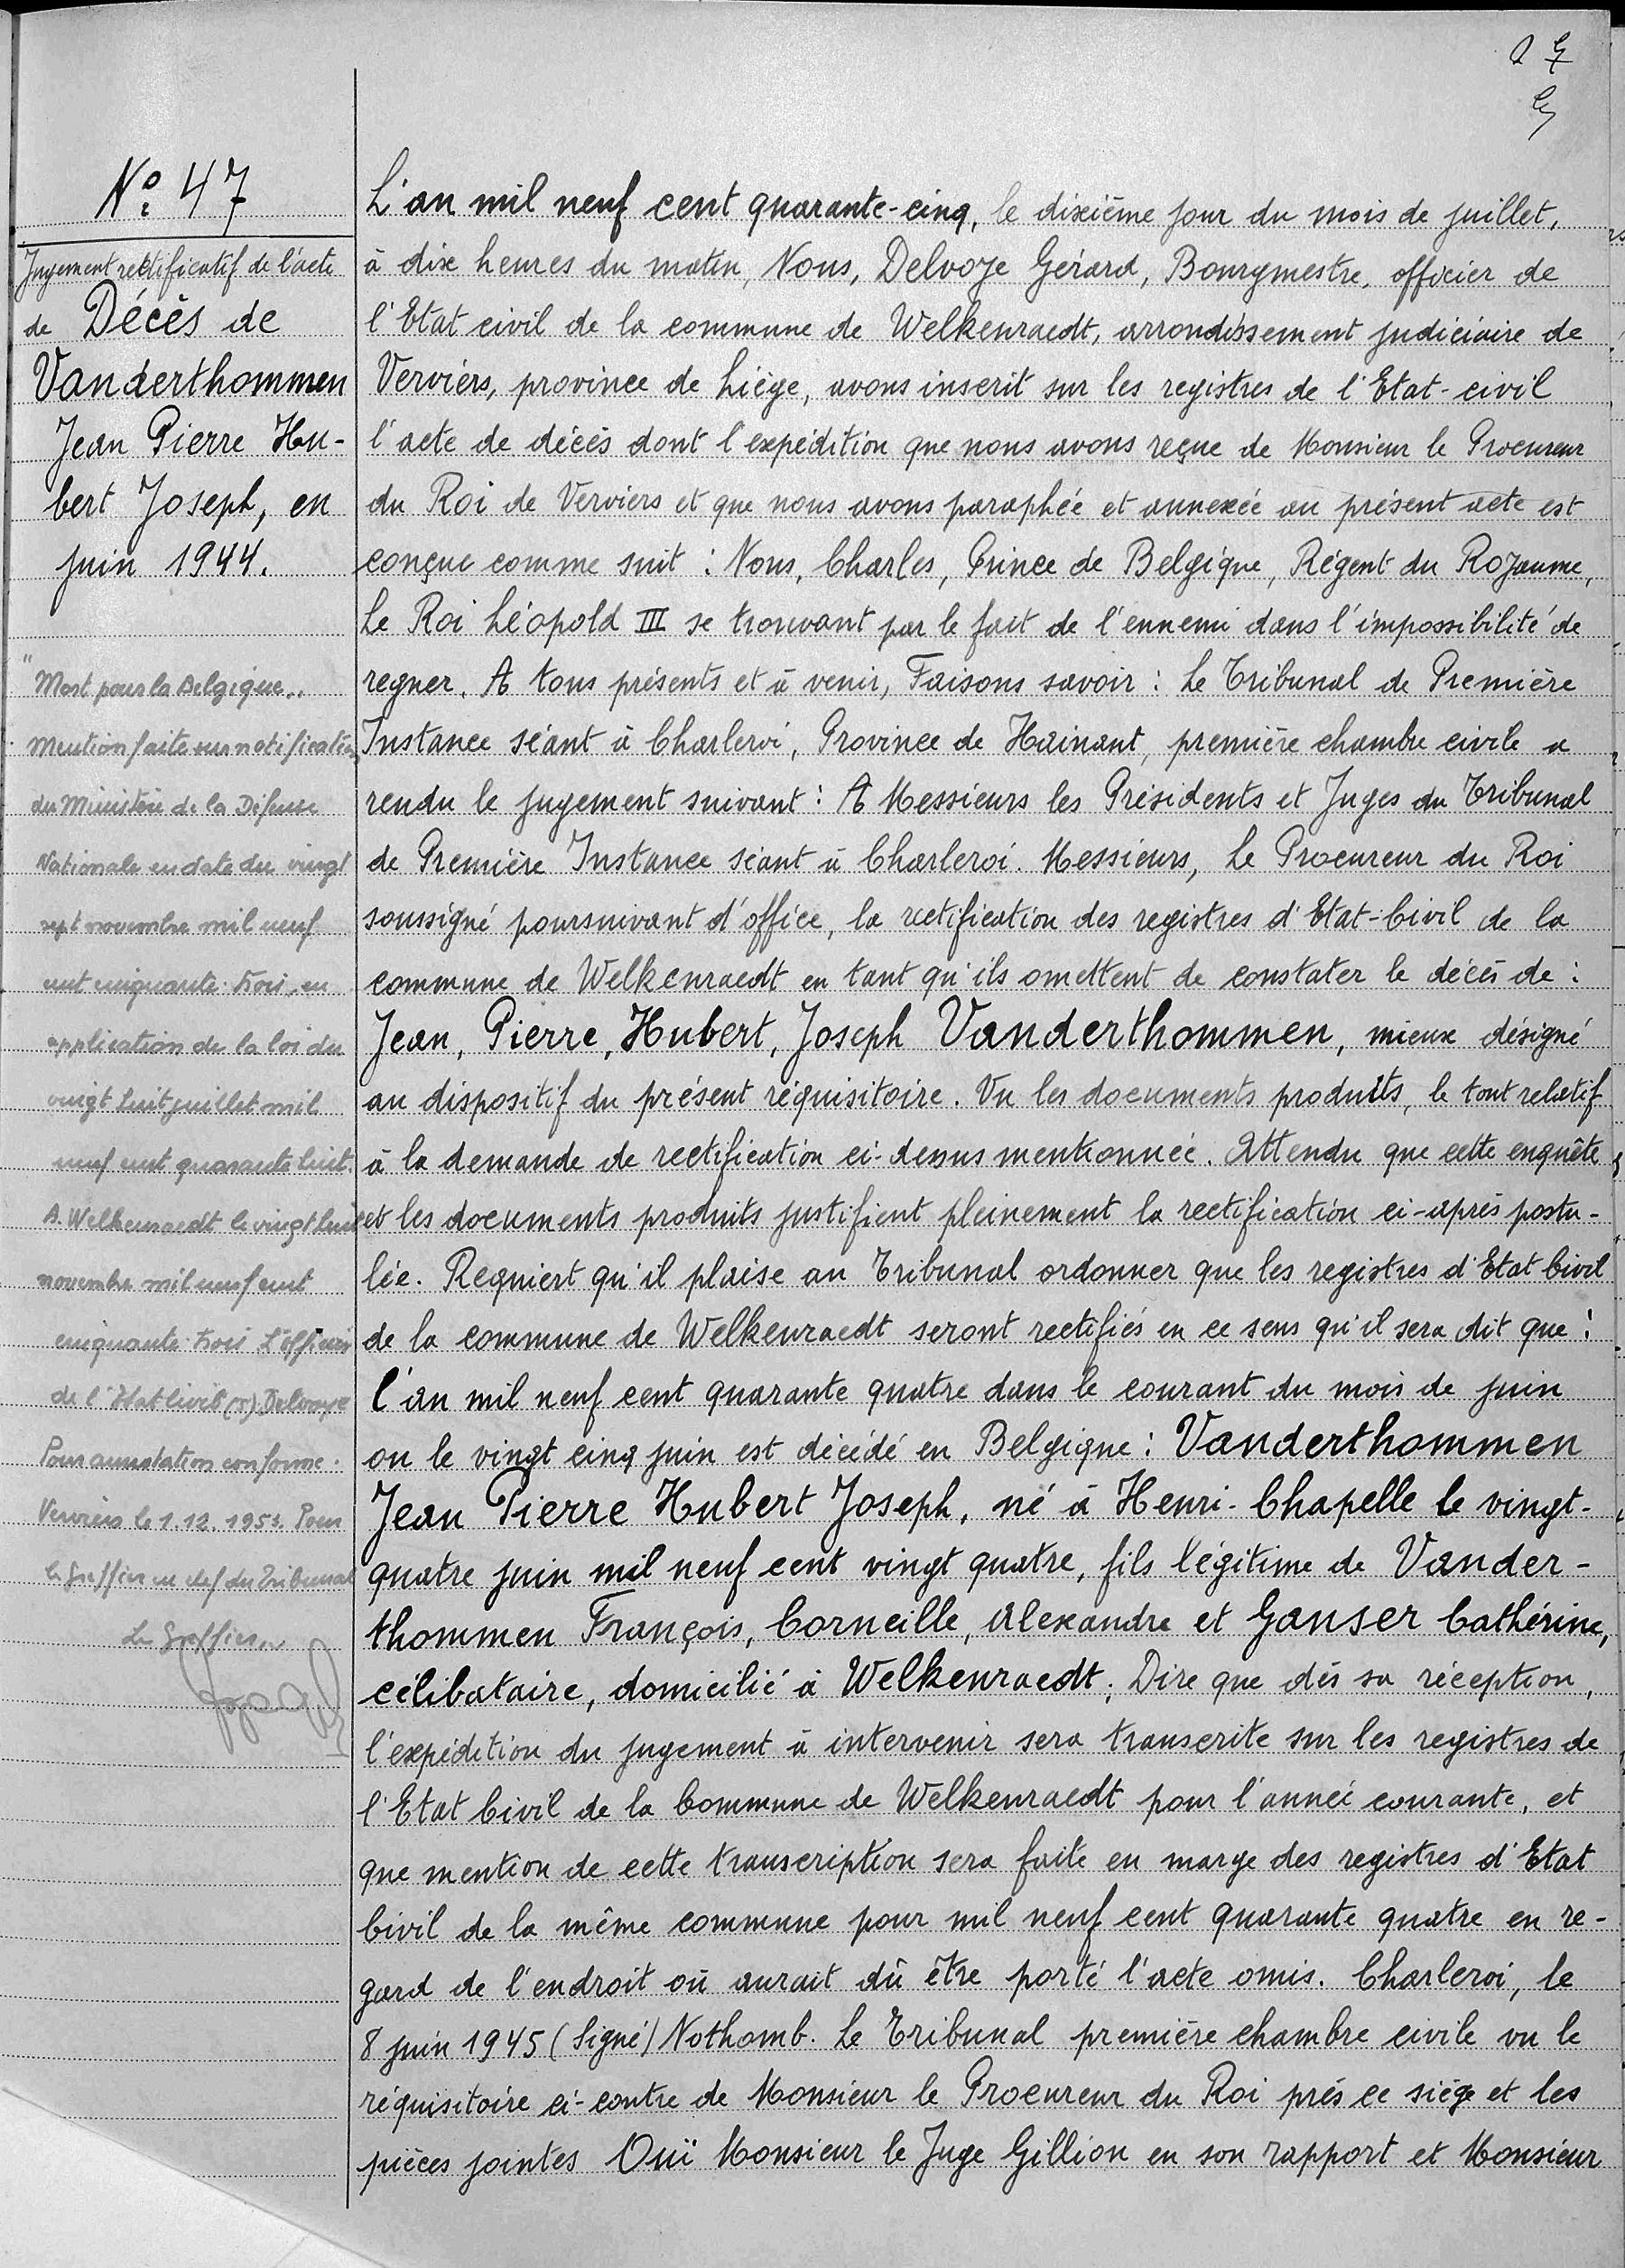 27
N° 47
Jugement rectificatif de l'acte
de Décès de
Vanderthommen
Jean Pierre Hu-
bert Joseph, en
juin 1944.
"Mort pour la Belgique"
Mention faite sur notification
du Ministère de la Défense
Nationale en date du vingt
sept novembre mil neuf
cent cinquante-trois, en
application de la loi du
vingt huit juillet mil
neuf cent quarante huit.
A Welkenraedt le vingt huit
novembre mil neuf cent
cinquante-trois L'Officier
de l'Etat Civil (s) Delvoye
Pour annotation conforme.
Verviers le 1.12.1953. Pour
le Greffier en chef du Tribunal
Le Greffier
L'an mil neuf cent quarante-cinq, le dixième jour du mois de juillet,
à dix heures du matin, Nous, Delvoye Gérard, Bourgmestre, officier de
l'Etat civil de la commune de Welkenraedt, arrondissement judiciaire de
Verviers, province de Liège, avons inscrit sur les registres de l'Etat-civil
l'acte de décès dont l'expédition que nous avons reçue de Monsieur le Procureur
du Roi de Verviers et que nous avons paraphée et annexée au présent acte est
conçue comme suit : Nous, Charles, Prince de Belgique, Régent du Royaume,
Le Roi Léopold III se trouvant par le fait de l'ennemi dans l'impossibilité de
regner. A tous présents et à venir, Faisons savoir : Le Tribunal de Première
Instance séant à Charleroi, Province de Hainaut, première chambre civile a
rendu le jugement suivant : A Messieurs les Présidents et Juges du Tribunal
de Première Instance séant à Charleroi. Messieurs, Le Procureur du Roi
soussigné poursuivant d'office, la rectification des registres d'Etat-Civil de la
commune de Welkenraedt en tant qu'ils omettent de constater le décès de :
Jean, Pierre, Hubert, Joseph Vanderthommen, mieux désigné
au dispositif du présent réquisitoire. Vu les documents produits, le tout relatif
à la demande de rectification ci-dessus mentionnée. Attendu que cette enquête
et les documents produits justifient pleinement la rectification ci-après postu-
lée. Requiert qu'il plaise au Tribunal ordonner que les registres d'Etat Civil
de la commune de Welkenraedt seront rectifiés en ce sens qu'il sera dit que :
l'an mil neuf cent quarante quatre dans le courant du mois de juin
ou le vingt cinq juin est décédé en Belgique : Vanderthommen
Jean Pierre Hubert Joseph, né à Henri-Chapelle le vingt-
quatre juin mil neuf cent vingt quatre, fils légitime de Vander-
thommen François, Corneille, Alexandre et Ganser Cathérine,
célibataire, domicilié à Welkenraedt ; Dire que dès sa réception,
l'expédition du jugement à intervenir sera transcrite sur les registres de
l'Etat Civil de la Commune de Welkenraedt pour l'année courante, et
que mention de cette transcription sera faite en marge des registres d'Etat
Civil de la même commune pour mil neuf cent quarante quatre en re-
gard de l'endroit où aurait dû être porté l'acte omis. Charleroi, le
8 juin 1945 (Signé) Nothomb. Le Tribunal première chambre civile vu le
réquisitoire ci-contre de Monsieur le Procureur du Roi près ce siège et les
pièces jointes Ouï Monsieur le Juge Gillion en son rapport et Monsieur